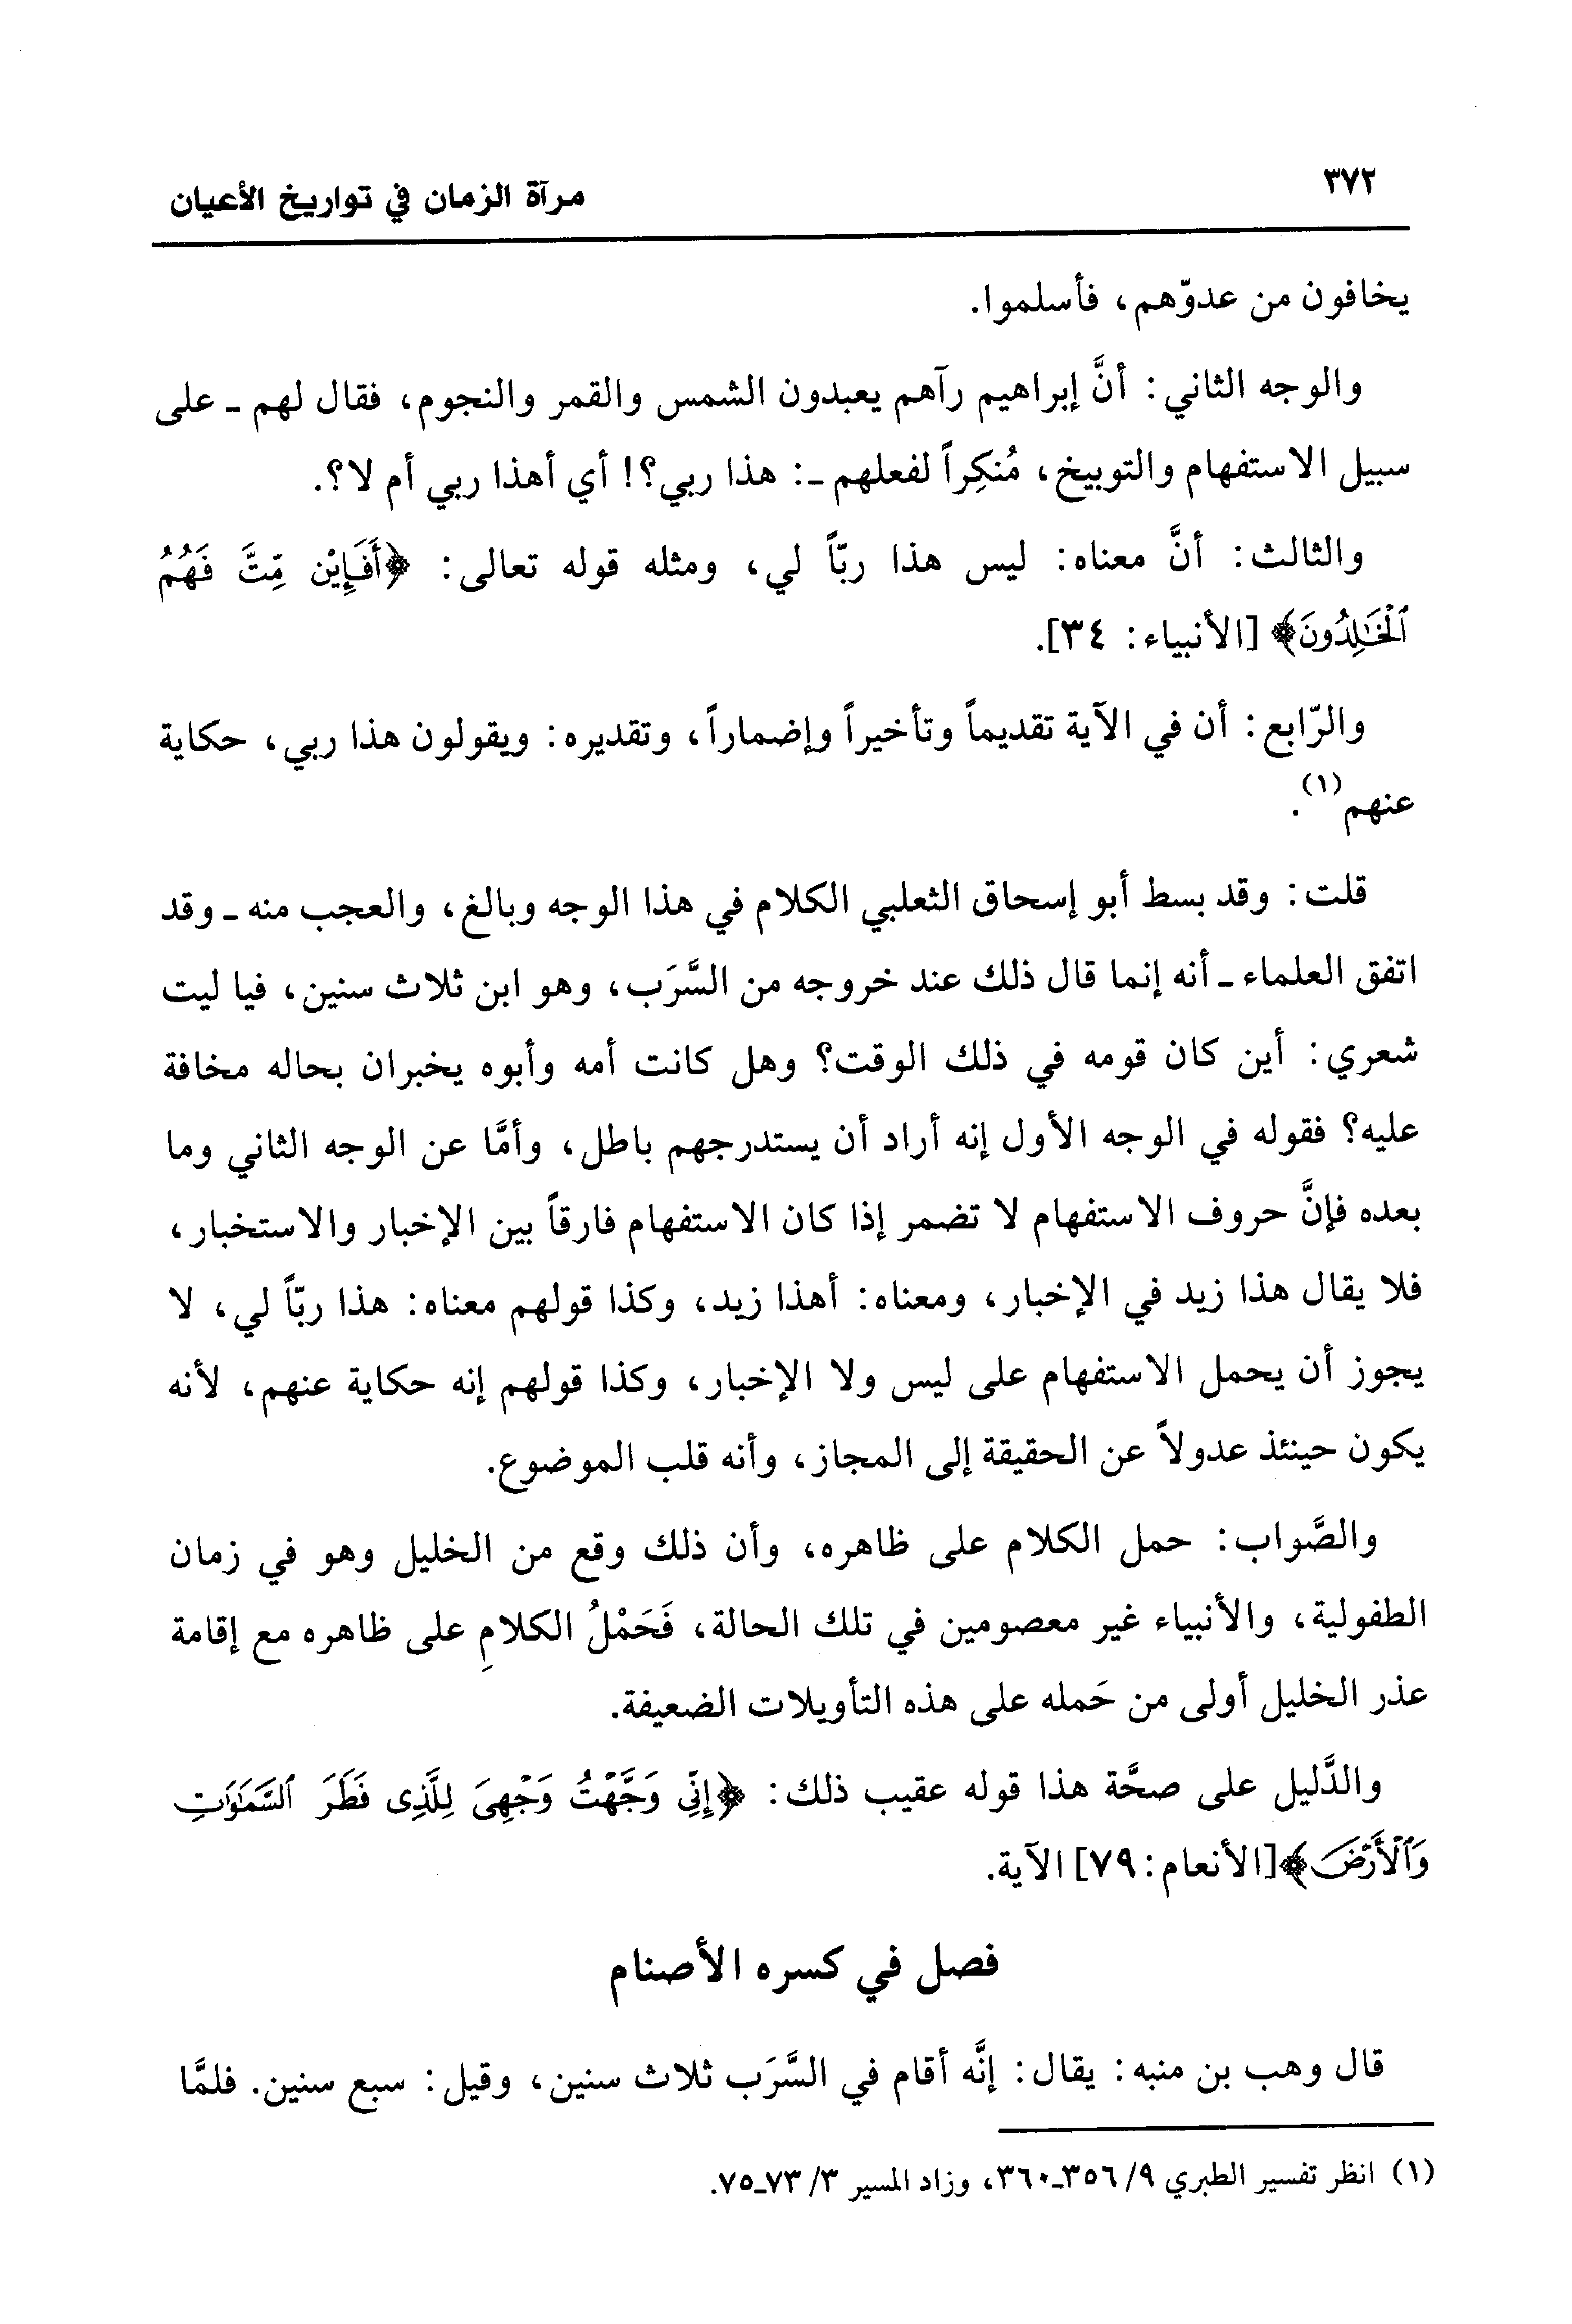 ٣٧٢
مرآة الزمان في تواريخ الأعيان
يخافون من عدوّهم، فأسلموا.
والوجه الثاني: أنَّ إبراهيم رآهم يعبدون الشمس والقمر والنجوم، فقال لهم ـ على
سبيل الاستفهام والتوبيخ، مُنكِراً لفعلهم ـ: هذا ربي؟! أي أهذا ربي أم لا؟.
والثالث: أنَّ معناه: ليس هذا ربّاً لي، ومثله قوله تعالى: ﴿أَفَإِيْن مِّتَّ فَهُمُ
ٱلْخَٰلِدُونَ﴾ [الأنبياء: ٣٤].
والرّابع: أن في الآية تقديماً وتأخيراً وإضماراً، وتقديره: ويقولون هذا ربي، حكاية
عنهم(١).
قلت: وقد بسط أبو إسحاق الثعلبي الكلام في هذا الوجه وبالغ، والعجب منه ـ وقد
اتفق العلماء ـ أنه إنما قال ذلك عند خروجه من السَّرَب، وهو ابن ثلاث سنين، فيا ليت
شعري: أين كان قومه في ذلك الوقت؟ وهل كانت أمه وأبوه يخبران بحاله مخافة
عليه؟ فقوله في الوجه الأول إنه أراد أن يستدرجهم باطل، وأمَّا عن الوجه الثاني وما
بعده فإنَّ حروف الاستفهام لا تضمر إذا كان الاستفهام فارقاً بين الإخبار والاستخبار،
فلا يقال هذا زيد في الإخبار، ومعناه: أهذا زيد، وكذا قولهم معناه: هذا ربّاً لي، لا
يجوز أن يحمل الاستفهام على ليس ولا الإخبار، وكذا قولهم إنه حكاية عنهم، لأنه
يكون حينئذ عدولاً عن الحقيقة إلى المجاز، وأنه قلب الموضوع.
والصَّواب: حمل الكلام على ظاهره، وأن ذلك وقع من الخليل وهو في زمان
الطفولية، والأنبياء غير معصومين في تلك الحالة، فَحَمْلُ الكلامِ على ظاهره مع إقامة
عذر الخليل أولى من حَمله على هذه التأويلات الضعيفة.
والدَّليل على صحَّة هذا قوله عقيب ذلك: ﴿إِنِّى وَجَّهْتُ وَجْهِىَ لِلَّذِى فَطَرَ ٱلسَّمَٰوَٰتِ
وَٱلْأَرْضَ﴾[الأنعام: ٧٩] الآية.
فصل في كسره الأصنام
قال وهب بن منبه: يقال: إنَّه أقام في السَّرَب ثلاث سنين، وقيل: سبع سنين. فلمَّا
(١) انظر تفسير الطبري ٩/ ٣٥٦ـ٣٦٠، وزاد المسير ٣/ ٧٣ـ٧٥.